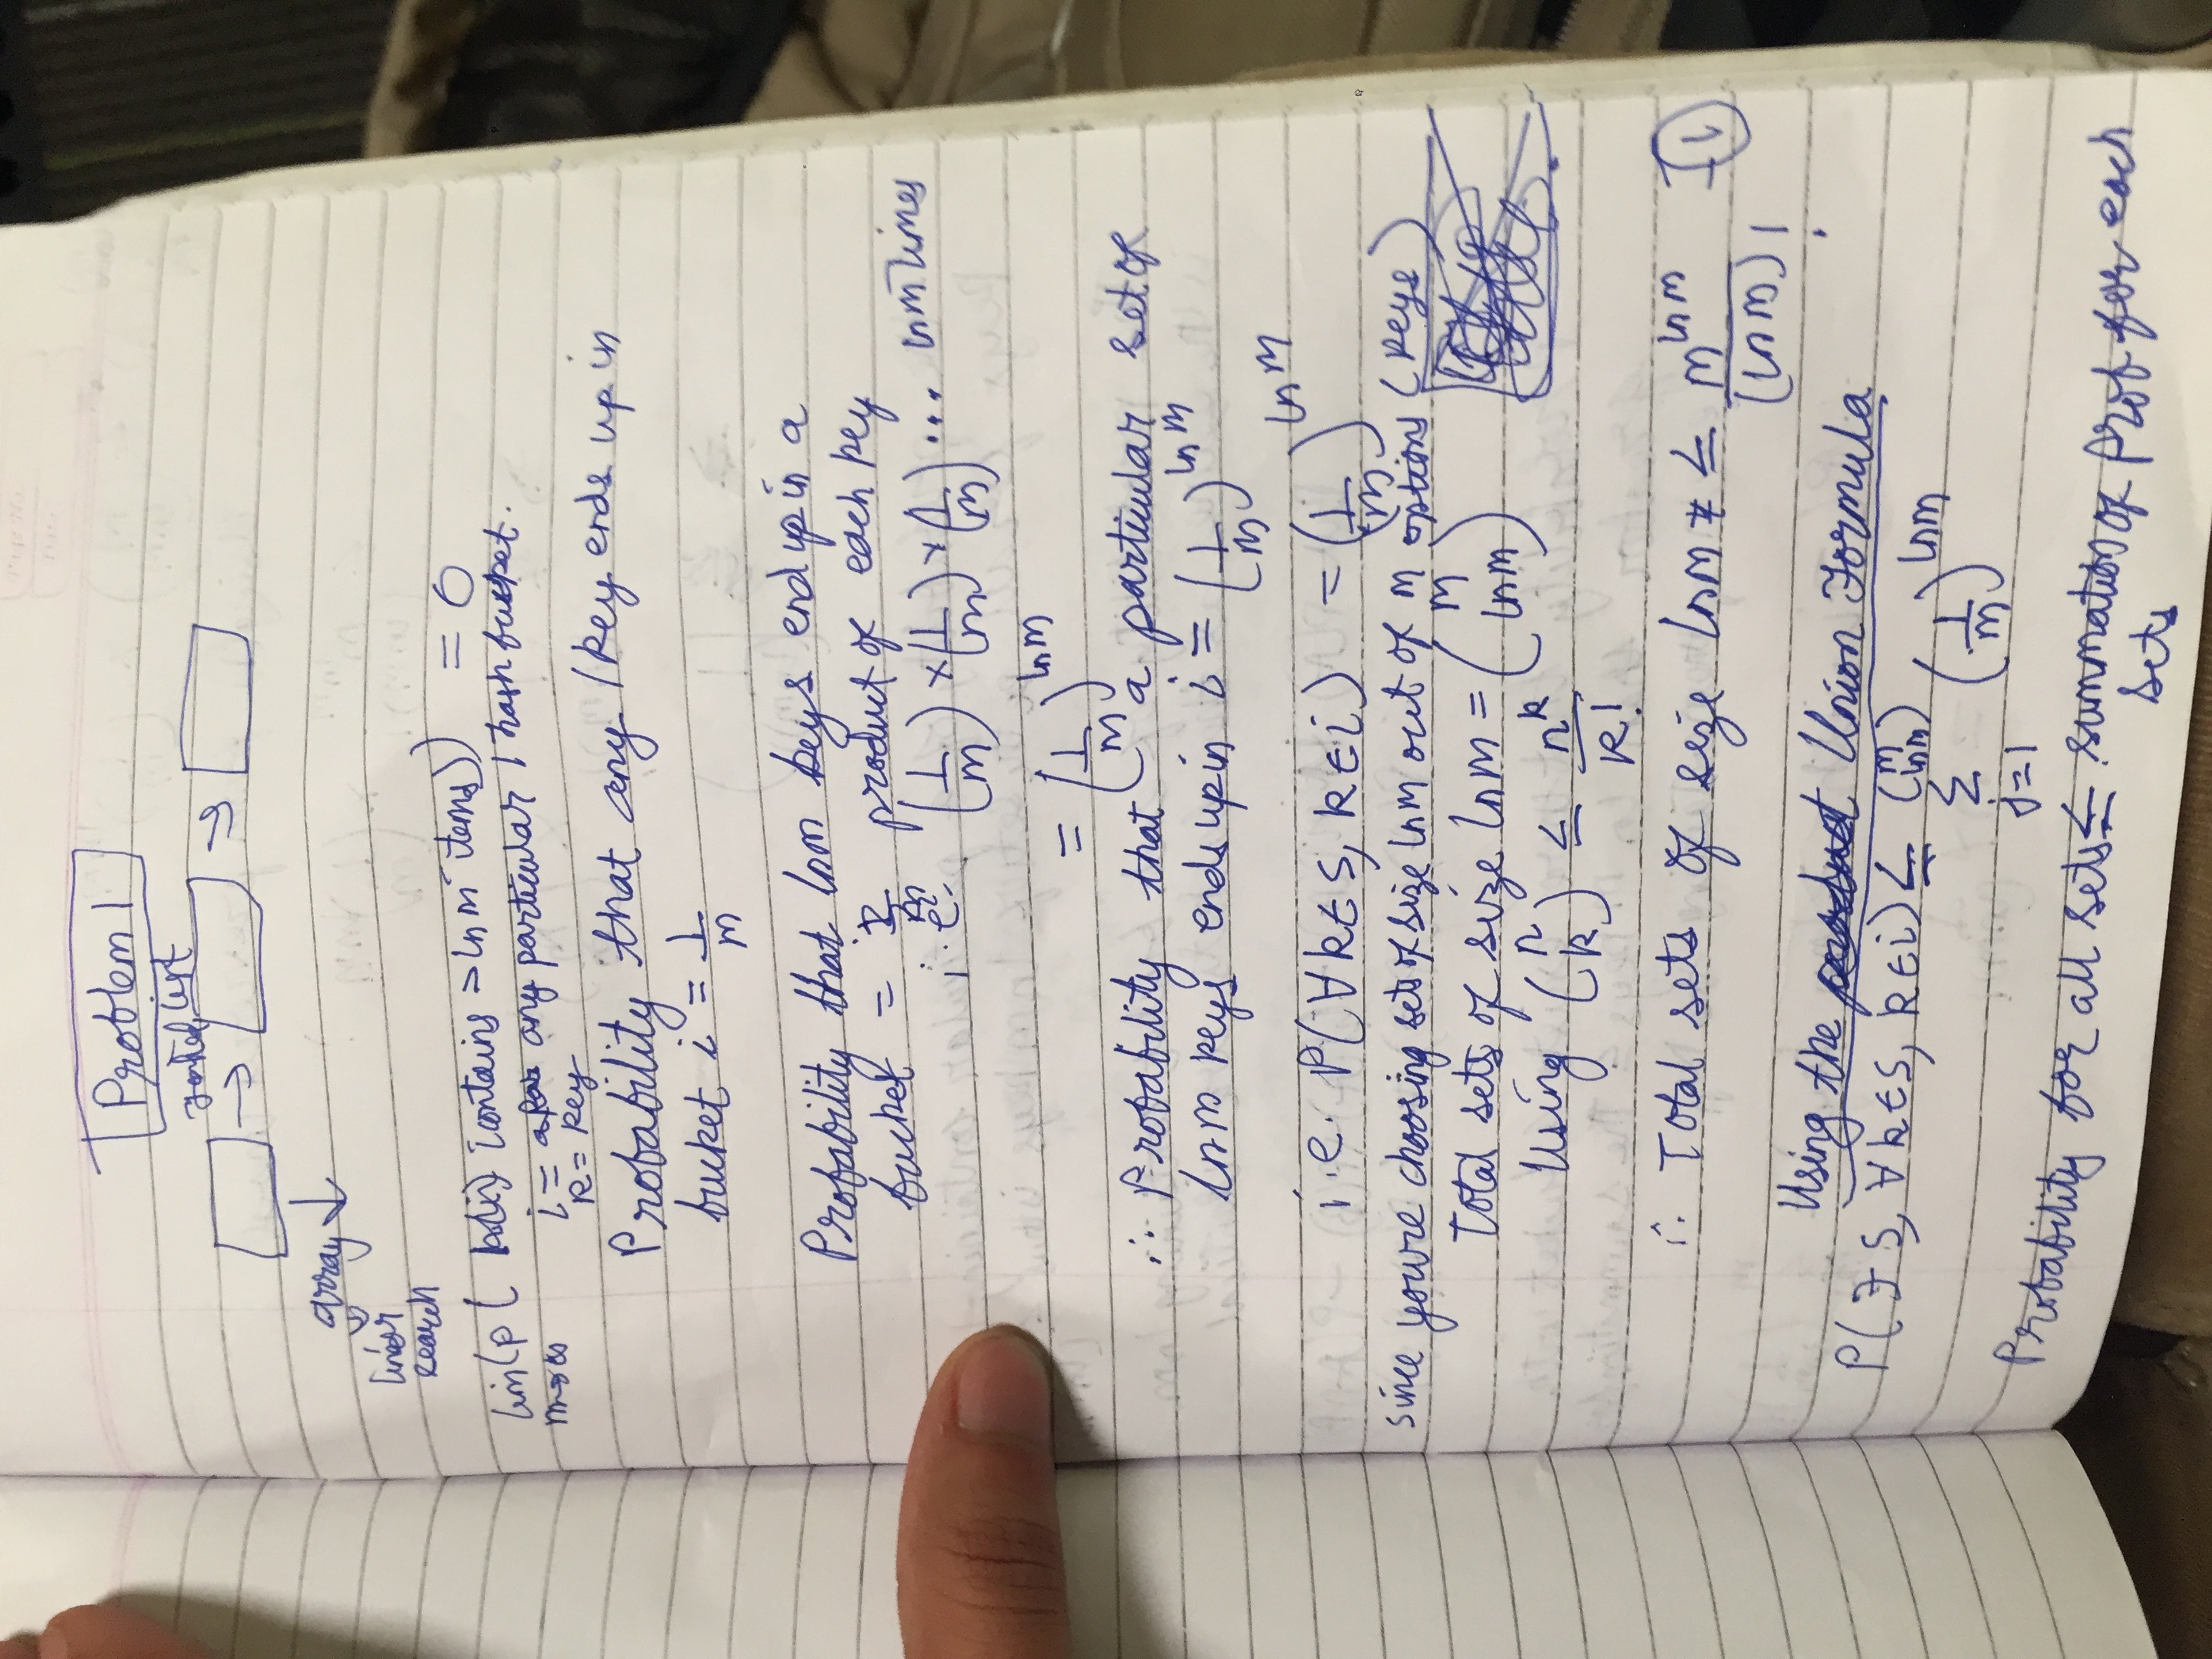 Problem 1
list
→ →
array ↓
linear
search
lim(P( contains > ln m items)) = 0
m→∞
i = any particular 1 hash bucket.
k = key
Probability that any 1 key ends up in
bucket i = 1/m
Probability that ln m keys end up in a
bucket = product of each key
i.e. (1/m) × (1/m) × (1/m) ... ln m times
= (1/m)^{ln m}
∴ Probability that a particular set of
ln m keys ends up in i = (1/m)^{ln m}
i.e. P(∀k∈S, k∈i) = (1/m)^{ln m}
Since you're choosing sets of size ln m out of m options (keys)
Total sets of size ln m = (m ln m)
Using (n k) ≤ n^k / k!
∴ Total sets of size ln m ≤ m^{ln m} / (ln m)! - ①
Using the Union Formula
P(∃ S, ∀k∈S, k∈i) ≤ Σ_{j=1}^{(m ln m)} (1/m)^{ln m}
Probability for all sets ≤ summation of prob for each
sets